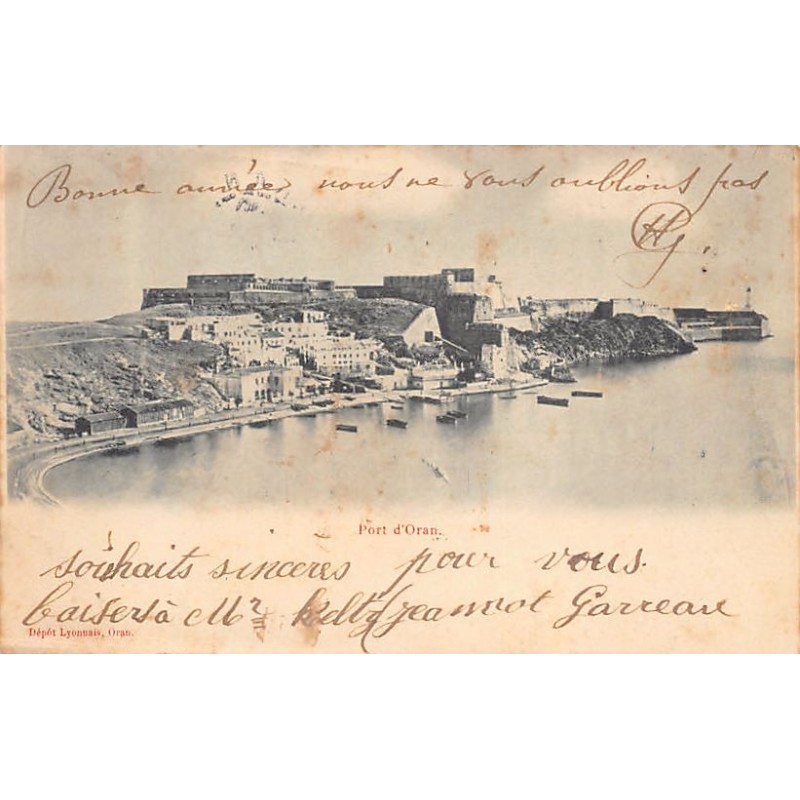 Bonne année nous ne vous oublions pas
Hg.
Port d'Oran.
souhaits sincères pour vous.
baisers à Mr Jeannot Garreau
Dépôt Lyonnais, Oran.